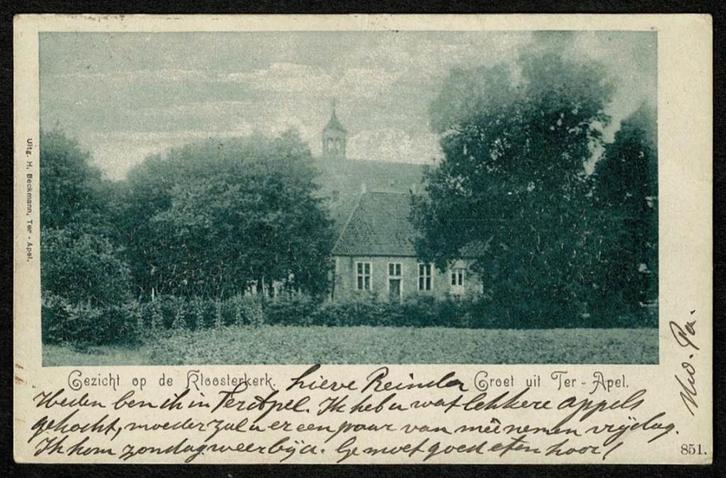 Uitg. H. Beckmann, Ter - Apel.
Gezicht op de Kloosterkerk. Lieve Reinder Groet uit Ter - Apel.
Heden ben ik in Ter Apel. Ik heb u wat lekkere appels
gekocht, moeder zal u er een paar van meênemen vrijdag.
Ik kom zondag weer bij u. Ge moet goed eten hoor!
Uw. Pa.
851.